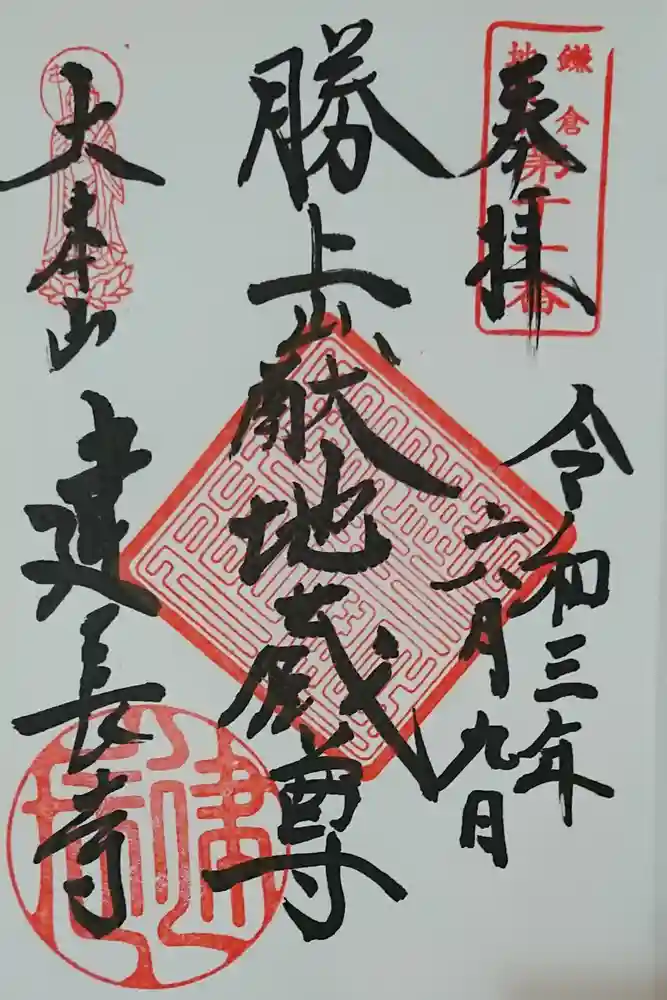 鎌倉
地
第十一番
奉拝
令和三年
六月九日
勝上巘地蔵尊
大本山
建長寺